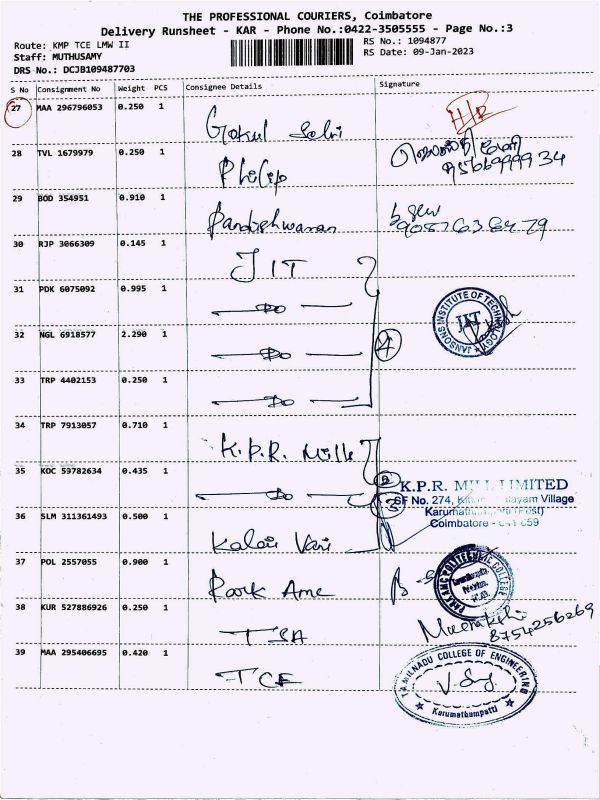 THE PROFESSIONAL COURIERS, Coimbatore
Delivery Runsheet - KAR - Phone No.:0422-3505555 - Page No.:3
Route: KMP TCE LMW II
RS No.: 1094877
Staff: MUTHUSAMY
RS Date: 09-Jan-2023
DRS No.: DCJB109487703
S No Consignment No Weight PCS Consignee Details Signature
27 MAA 296796053 0.250 1 Gokul
28 TVL 1679979 0.250 1 Philip
29 BOD 354951 0.910 1 Pandishwaran
30 RJP 3066309 0.145 1 JIT
31 PDK 6075092 0.995 1 Do
32 NGL 6918577 2.290 1 Do
4
33 TRP 4402153 0.250 1 Do
JANSONS INSTITUTE OF TECHNOLOGY
JIT
34 TRP 7913057 0.710 1 K.P.R. Mills
35 KOC 59782634 0.435 1 Do
K.P.R. MILL LIMITED
SF No. 274, Village
Karumathampatti (Post)
Coimbatore - 641 659
36 SLM 311361493 0.500 1 Kalai Vani
37 POL 2557055 0.900 1 Park
38 KUR 527886926 0.250 1
8754256269
39 MAA 295406695 0.420 1 TCE
TAMILNADU COLLEGE OF ENGINEERING
Karumathampatti